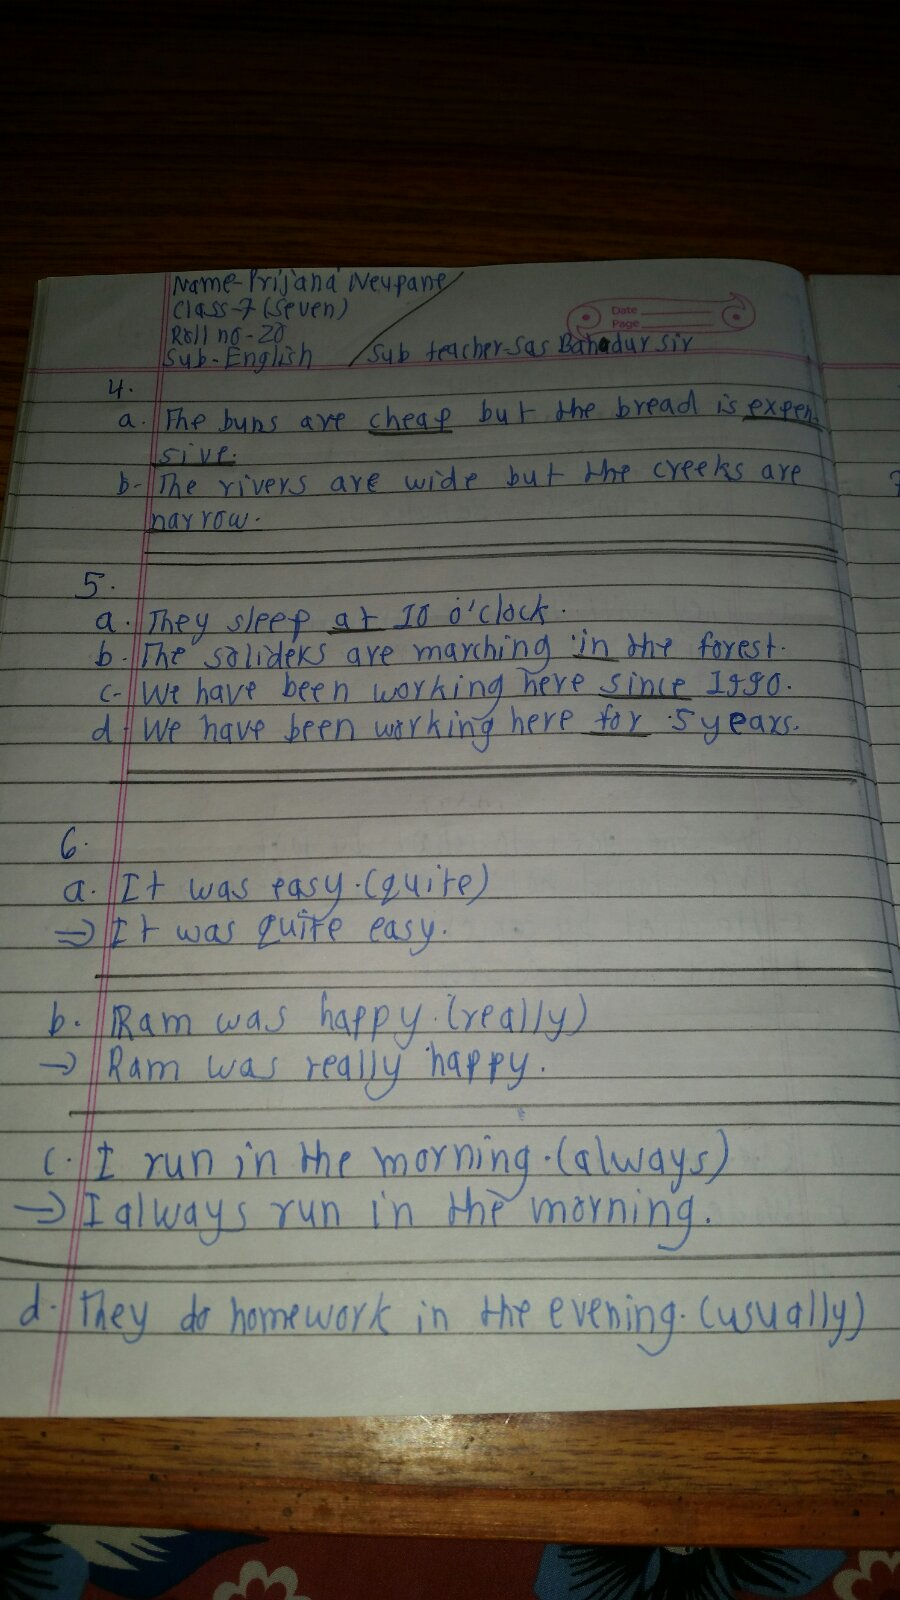 Name-Prijana Neupane
Class-7 (Seven)
Roll no-20
Sub-English
Sub teacher-Sas Bahadur sir
Date
Page
4.
a. The buns are cheap but the bread is expen
sive.
b- The rivers are wide but the creeks are
narrow.
5.
a. They sleep at 10 o'clock.
b. The soliders are marching in the forest.
c- We have been working here since 1990.
d. We have been working here for 5 years.
6.
a. It was easy. (quite)
⇒ It was quite easy.
b. Ram was happy. (really)
→ Ram was really happy.
c. I run in the morning. (always)
→ I always run in the morning.
d. They do homework in the evening. (usually)